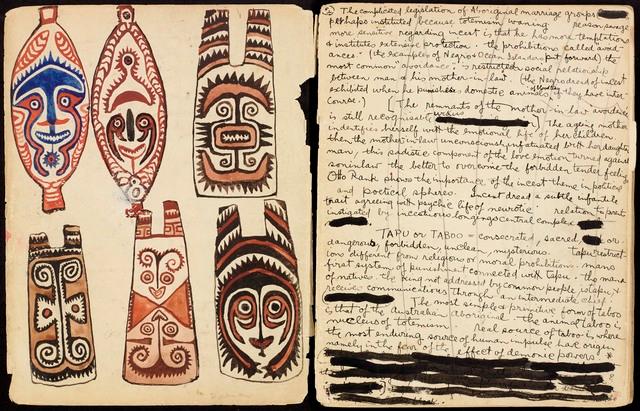 The complicated legislation of Aboriginal marriage groups
perhaps instituted because totemism waning reason savage
more sensitive regarding incest is that he has more temptations
& institutes extensive protection. the prohibitions called avoid-
ances. (the examples of Negros Ocean Islanders put forward) the
most common avoidance is restricted social relationship
between man & his mother-in-law (the Negroes dread incest
exhibited when he punishes domestic animals if they have inter-
course.) (The remnants of the mother in law avoidance
is still recognisable The ageing mother
indentifies herself with the emotional life of her children
then the mother-in-law unconsciously infatuated with her daughters
man, this sadistic component of the love emotion turned against
son in law the better to overcome the forbidden tender feelings
Otto Rank shows the importance of the incest theme in poetical
and poetical spheres. Incest dread a subtle infantile
trait agreeing with psychic life of neurotic relation to parent
instigated by incestuous longings central complex
TAPU or TABOO = consecrated, sacred, or
dangerous, forbidden, unclean, mysterious tapu restrict
ions different from religious or moral prohibitions. mans
first system of punishment connected with tapu. the mana
of natives. the chief not addressed by common people is tapu &
receive communications through an intermediate chief
The most simple & primitive form of taboo
is that of the Australian aboriginal the animal taboo is
nucleus of totemism real source of taboo is where
the most enduring source of human impulse have origin
namely in the fear of the effect of demonic powers